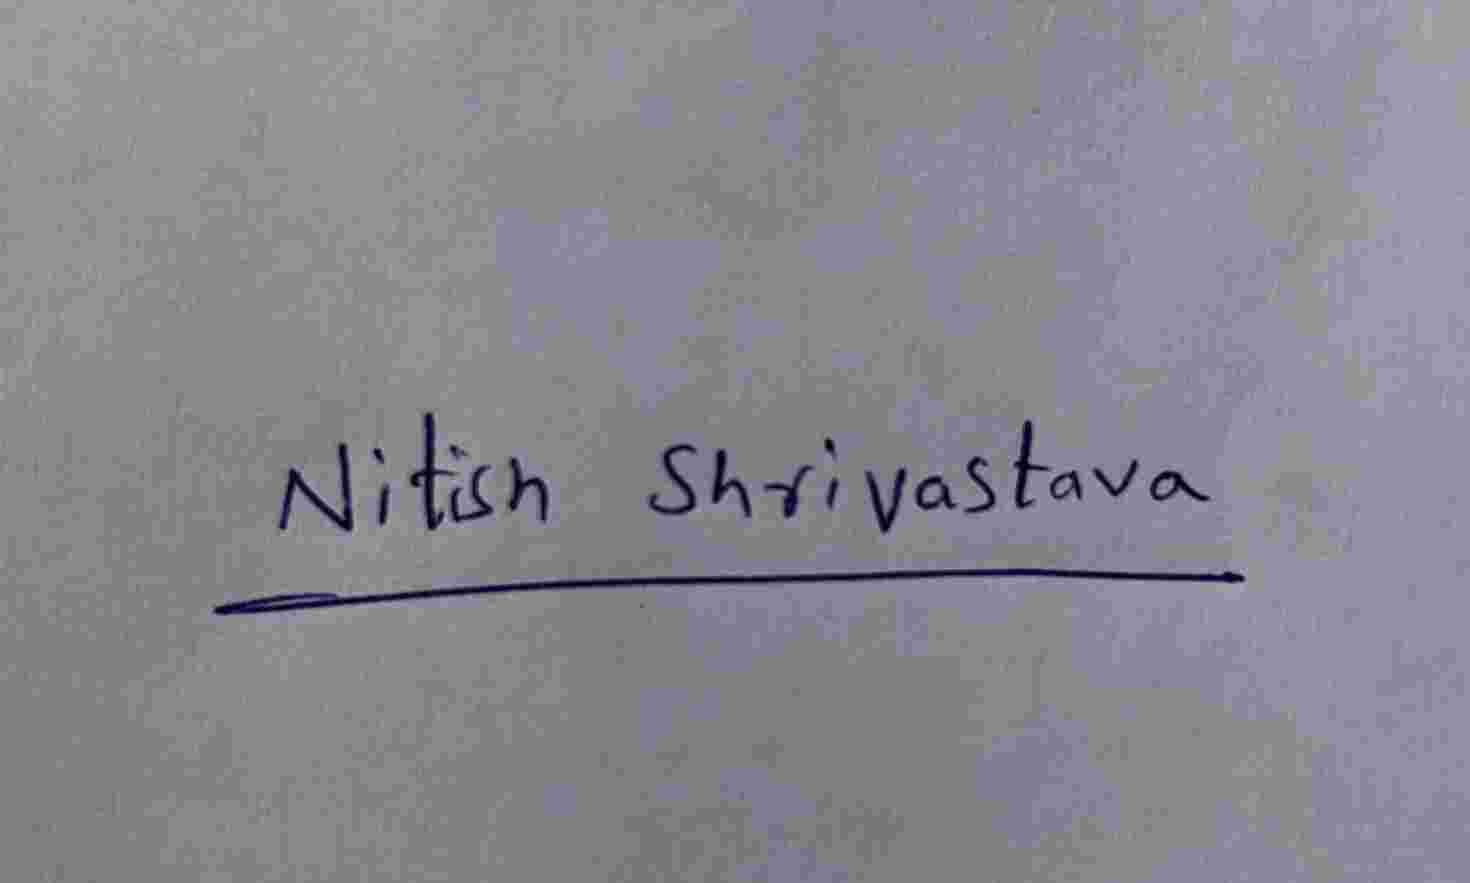 Nitish Shrivastava